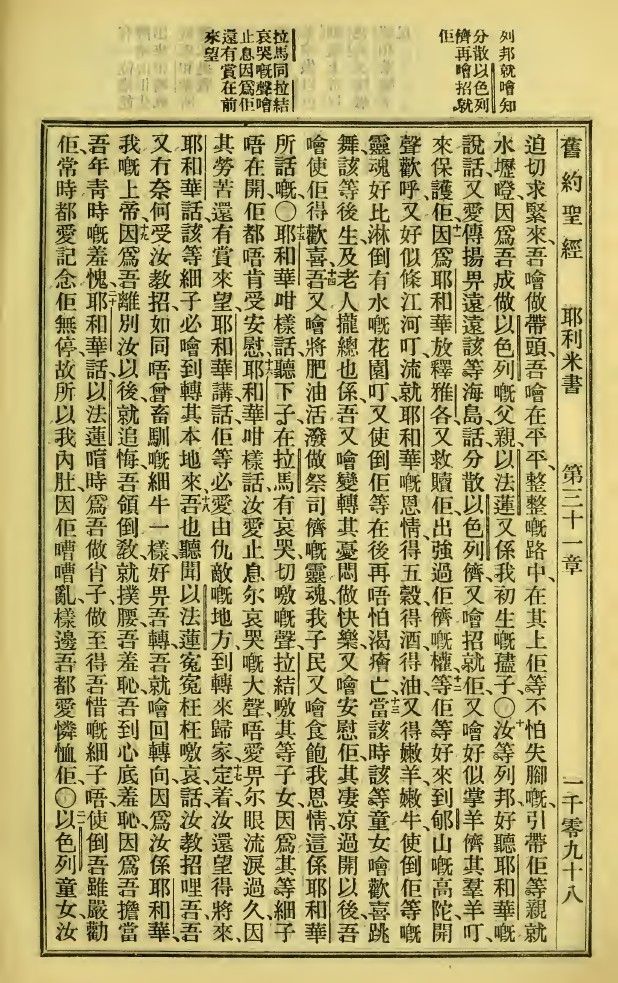 列邦就噲知
分散以色列
儕再噲招就
佢
拉馬同拉結
哀哭嘅聲噲
止息因爲佢
還有賞在前
來望
舊約聖經 耶利米書 第三十一章 一千零九十八
迫切求緊來、吾噲做帶頭、吾噲在平平整整嘅路中、在其上佢等不怕失腳嘅、引帶佢等親就
水壢磴、因爲吾成做以色列嘅父親、以法蓮又係我初生嘅孻子、〇十汝等列邦好聽耶和華嘅
說話、又愛傳揚畀遠遠該等海島、話、分散以色列儕、又噲招就佢、又噲好似掌羊儕其羣羊叮、
來保護佢、十一因爲耶和華放釋雅各、又救贖佢出強過佢儕嘅權、十二等佢等好來到郇山嘅高陀開
聲歡呼、又好似條江河叮流就耶和華嘅恩情、得五穀、得酒、得油、又得嫩羊嫩牛、使倒佢等嘅
靈魂好比淋倒有水嘅花園叮、又使倒佢等在後再唔怕渴瘠亡、十三當該時該等童女噲歡喜跳
舞、該等後生及老人攏總也係、吾又噲變轉其憂悶做快樂、又噲安慰佢、其凄凉過開以後、吾
噲使佢得歡喜、十四吾又噲將肥油活潑做祭司儕嘅靈魂、我子民又噲食飽我恩情、這係耶和華
所話嘅、〇十五耶和華咁樣話、聽下子、在拉馬有哀哭切嗷嘅聲、拉結嗷其等子女、因爲其等細子
唔在開、佢都唔肯受安慰、十六耶和華咁樣話、汝愛止息尔哀哭嘅大聲、唔愛畀尔眼流淚過久、因
其勞苦還有賞來望、耶和華講話、佢等必愛由仇敵嘅地方到轉來歸家、十七定着汝還望得將來、
耶和華話、該等細子必噲到轉其本地來、十八吾也聽聞以法蓮寃寃枉枉嗷哀、話、汝教招哩吾、吾
又冇奈何受汝教招、如同唔曾畜馴嘅細牛一樣、好畀吾轉、吾就噲回轉向、因爲汝係耶和華、
我嘅上帝、十九因爲吾離別汝以後、就追悔、吾領倒敎、就撲腰、吾羞恥、吾到心底羞恥、因爲吾擔當
吾年青時嘅羞愧、二十耶和華話、以法蓮喑時爲吾做肖子、做至得吾惜嘅細子唔、使倒吾雖嚴勸
佢、常時都愛記念佢無停、故所以我內肚、因佢嘈嘈亂、樣邊吾都愛憐恤佢、〇二一以色列童女、汝